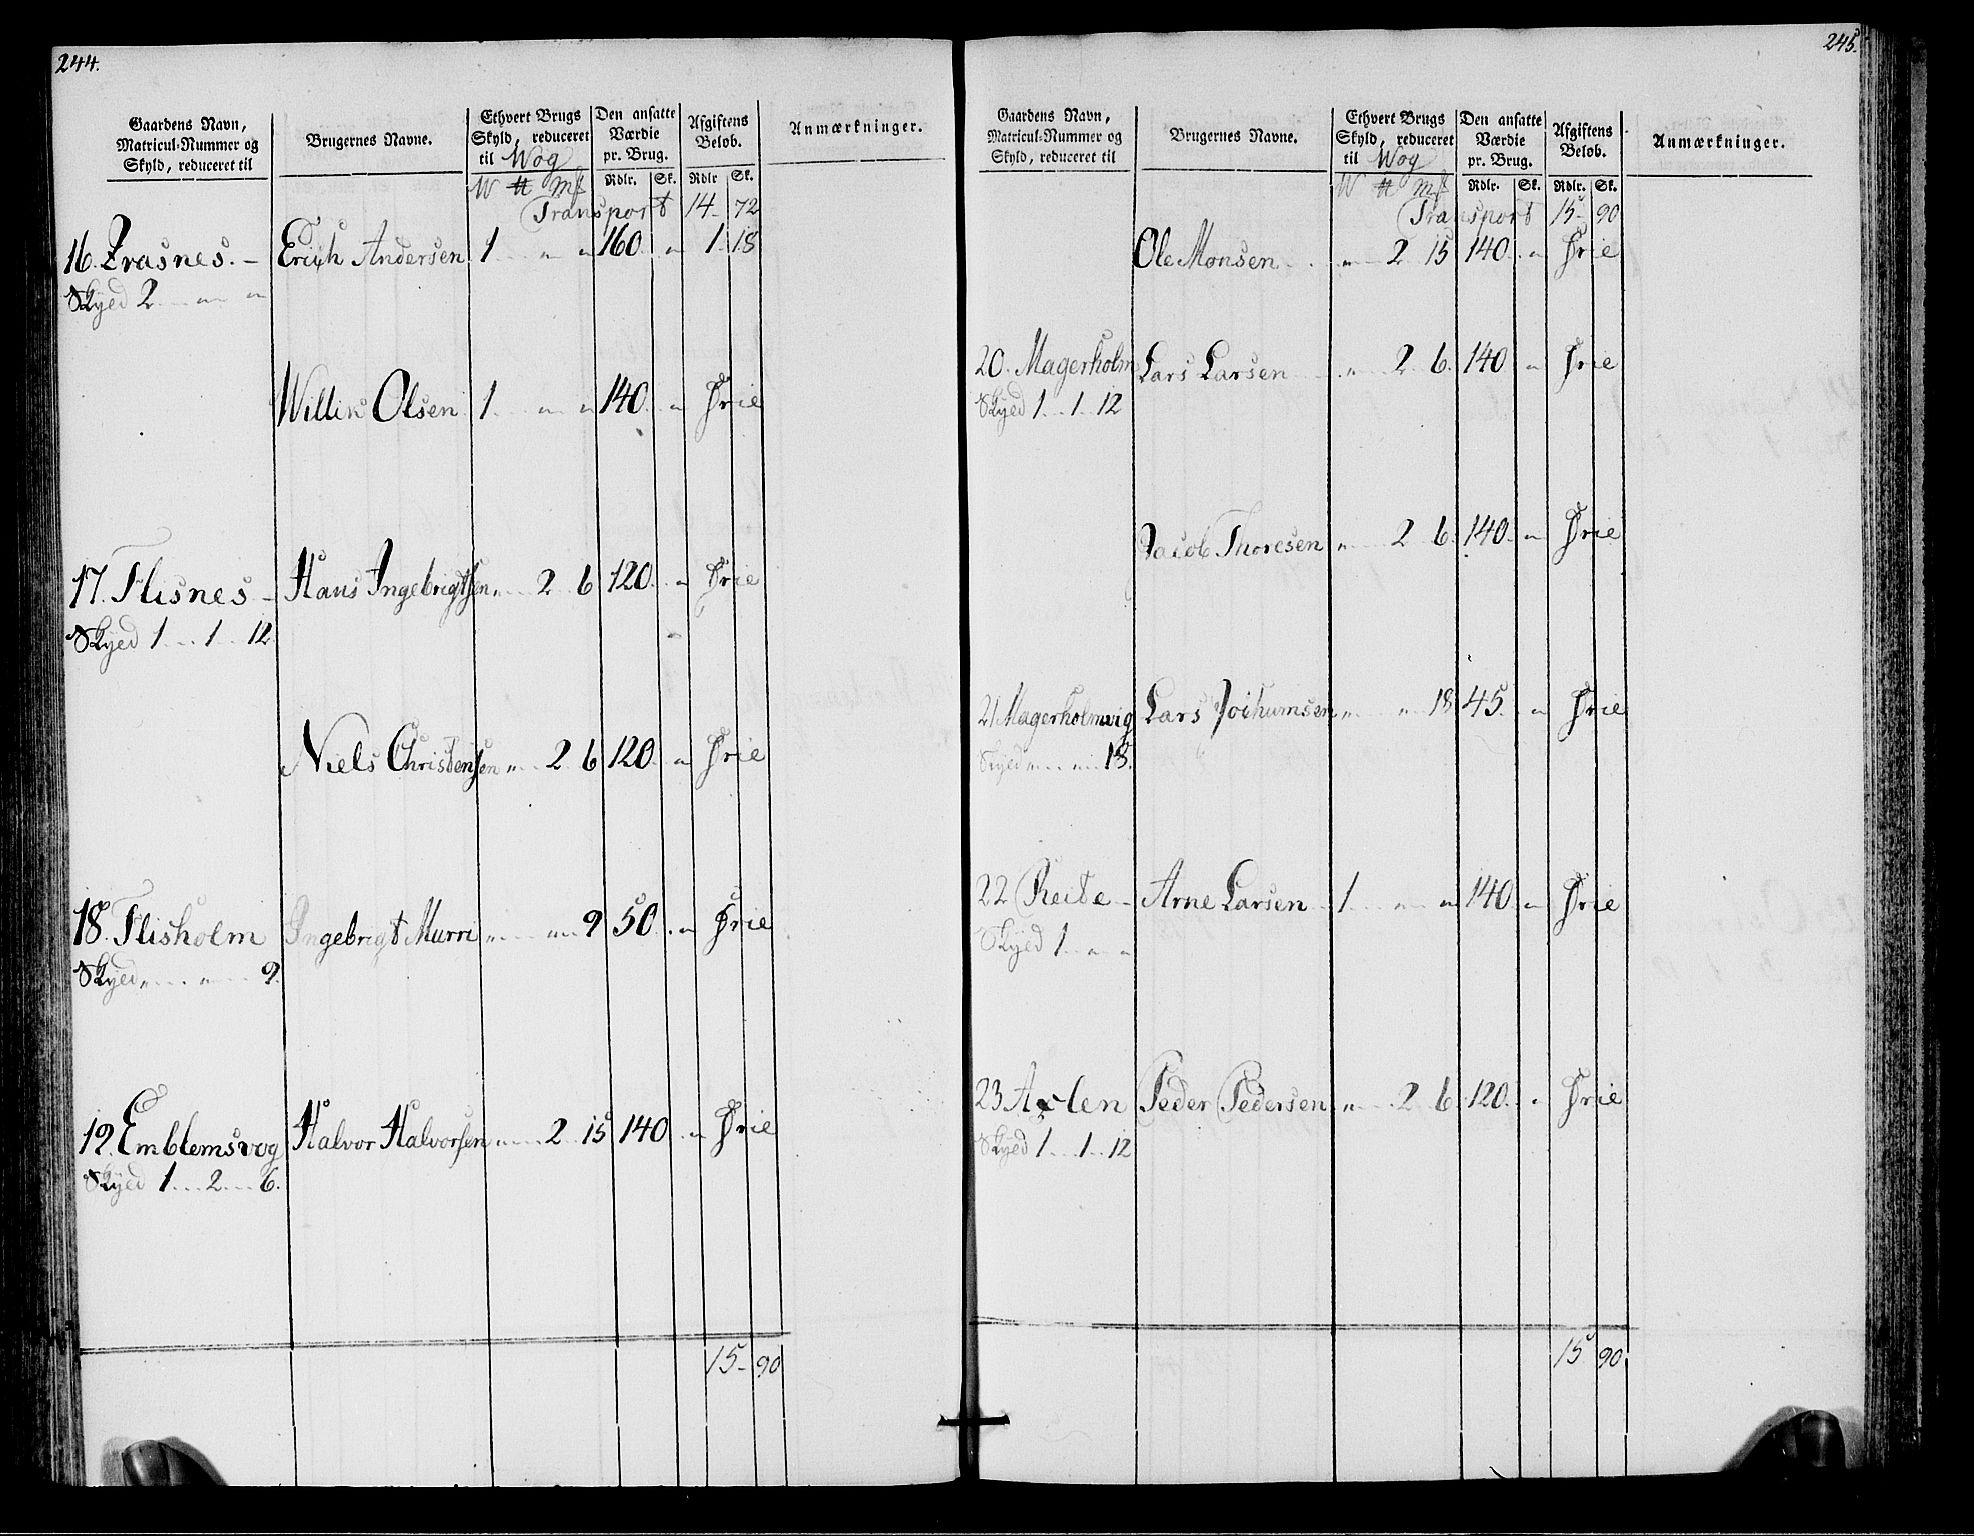 244.
Gaardens Navn, Matricul-Nummer og Skyld, reduceret til | Brugernes Navne. | Ethvert Brugs Skyld, reduceret til Wog | Den ansatte Værdie pr. Brug. | Afgiftens Beløb. | Anmærkninger.
W ℔ mk | Rdlr. | Sk. | Rdlr | Sk.
Transport 14 - 72
16. Zrasnes. - Erich Andersen 1 " " 160 " 1 18
Skyed 2 " "
Willin Olsen 1 " " 140 " Frie
17. Flisnes - Hans Ingebrigtsen " 2 6 120 " Frie
Skyed 1 1 12
Niels Christensen " 2 6 120 " Frie
18. Flisholm Ingebrigt Murri " " 9 50 " Frie
Skyed " " 9.
19. Emblemsvog Halvor Halvorsen " 2 15 140 " Frie
Skyed 1 2 6.
15 - 90
245.
Gaardens Navn, Matricul-Nummer og Skyld, reduceret til | Brugernes Navne. | Ethvert Brugs Skyld, reduceret til Wog | Den ansatte Værdie pr. Brug. | Afgiftens Beløb. | Anmærkninger.
W ℔ mk | Rdlr. | Sk. | Rdlr. | Sk.
Transport 15 - 90
Ole Monsen " 2 15 140 " Frie
20. Magerholm Lars Larsen " 2 6 140 " Frie
Skyed 1 1 12
Jacob Thoresen " 2 6 140 " Frie
21 Magerholmvig Lars Jochumsen " " 18 45 " Frie
Skyed " " 18.
22 Reite - Arne Larsen 1 " " 140 " Frie
Skyed 1 " "
23 Axlen Peder Pedersen " 2 6 120 " Frie
Skyed 1 1 12
15 90